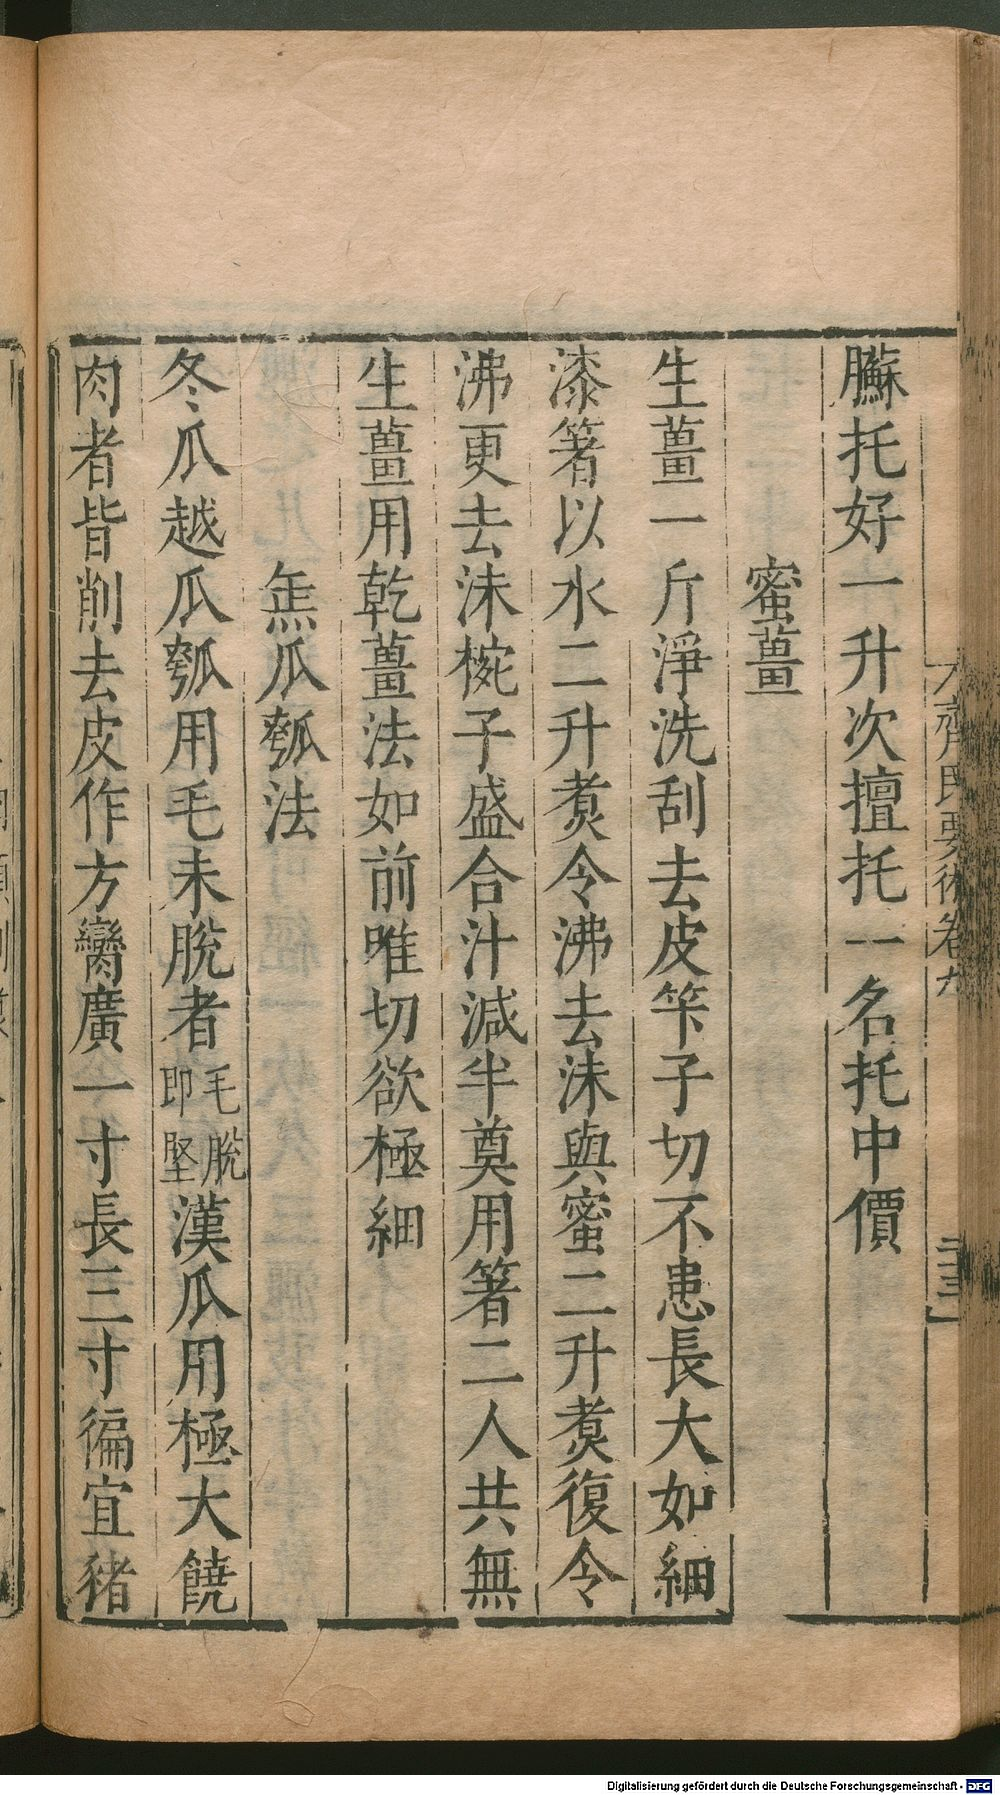 齊民要術卷九
二十三
臙托好一升次擅托一名托中價
蜜薑
生薑一斤淨洗刮去皮笇子切不患長大如細
漆箸以水二升煑令沸去沬與蜜二升煑復令
沸更去沬椀子盛合汁減半奠用箸二人共無
生薑用乾薑法如前唯切欲極細
缹瓜瓠法
冬瓜越瓜瓠用毛未脫者毛脫即堅漢瓜用極大饒
肉者皆削去皮作方臠廣一寸長三寸徧宜豬
Digitalisierung gefördert durch die Deutsche Forschungsgemeinschaft - DFG